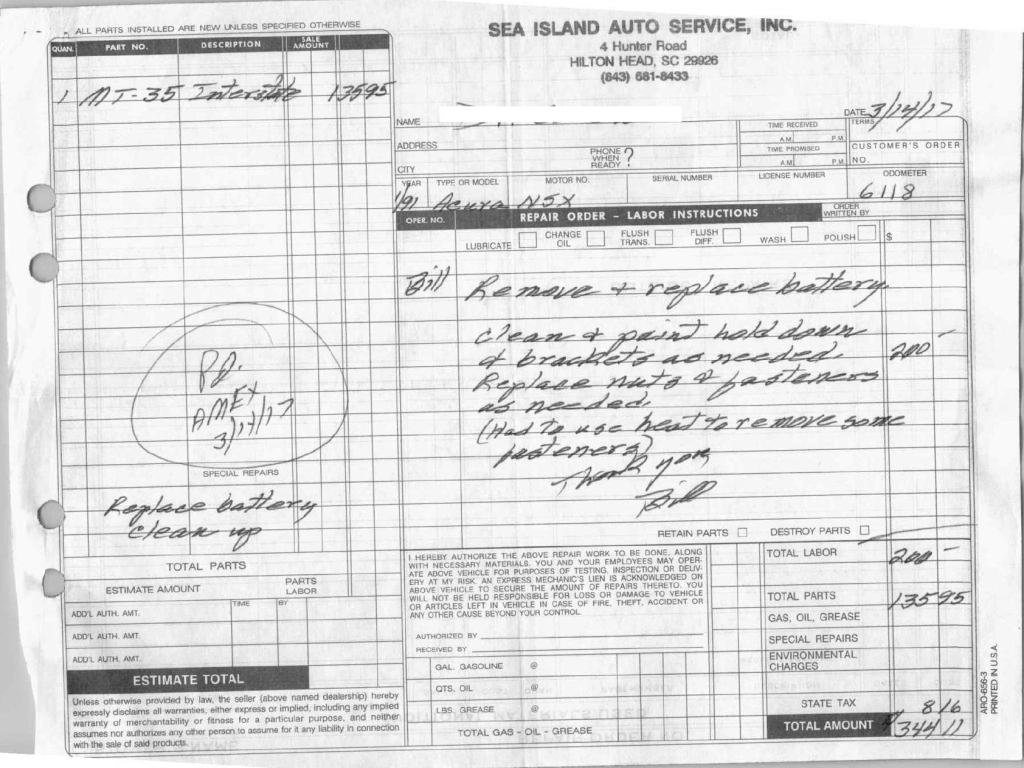 ALL PARTS INSTALLED ARE NEW UNLESS SPECIFIED OTHERWISE
QUAN. PART NO. DESCRIPTION SALE AMOUNT
1 MT-35 Interstate 135 95
SEA ISLAND AUTO SERVICE, INC.
4 Hunter Road
HILTON HEAD, SC 29926
(843) 681-8433
NAME
DATE 3/14/17
ADDRESS
CITY
PHONE WHEN READY ?
TIME RECEIVED
A.M. P.M.
TIME PROMISED
A.M. P.M.
TERMS
CUSTOMER'S ORDER NO.
YEAR TYPE OR MODEL MOTOR NO. SERIAL NUMBER LICENSE NUMBER ODOMETER
1/91 Acura NSX 6118
OPER. NO. REPAIR ORDER – LABOR INSTRUCTIONS ORDER WRITTEN BY
LUBRICATE CHANGE OIL FLUSH TRANS. FLUSH DIFF. WASH POLISH $
Bill Remove & replace battery.
clean & paint hold down
& brackets as needed. 200 -
Replace nuts & fasteners
as needed.
(Had to use heat to remove some
fasteners)
Thank you,
Bill
Pd.
AMEX
3/14/17
SPECIAL REPAIRS
Replace battery
clean up
RETAIN PARTS DESTROY PARTS
TOTAL PARTS
ESTIMATE AMOUNT PARTS LABOR
TIME BY
ADD'L AUTH. AMT.
ADD'L AUTH. AMT.
ADD'L AUTH. AMT.
ESTIMATE TOTAL
Unless otherwise provided by law, the seller (above named dealership) hereby
expressly disclaims all warranties, either express or implied, including any implied
warranty of merchantability or fitness for a particular purpose, and neither
assumes nor authorizes any other person to assume for it any liability in connection
with the sale of said products.
I HEREBY AUTHORIZE THE ABOVE REPAIR WORK TO BE DONE, ALONG
WITH NECESSARY MATERIALS. YOU AND YOUR EMPLOYEES MAY OPER-
ATE ABOVE VEHICLE FOR PURPOSES OF TESTING, INSPECTION OR DELIV-
ERY AT MY RISK. AN EXPRESS MECHANIC'S LIEN IS ACKNOWLEDGED ON
ABOVE VEHICLE TO SECURE THE AMOUNT OF REPAIRS THERETO. YOU
WILL NOT BE HELD RESPONSIBLE FOR LOSS OR DAMAGE TO VEHICLE
OR ARTICLES LEFT IN VEHICLE IN CASE OF FIRE, THEFT, ACCIDENT OR
ANY OTHER CAUSE BEYOND YOUR CONTROL.
AUTHORIZED BY
RECEIVED BY
GAL. GASOLINE @
QTS. OIL @
LBS. GREASE @
TOTAL GAS - OIL - GREASE
TOTAL LABOR 200 -
TOTAL PARTS 135 95
GAS, OIL, GREASE
SPECIAL REPAIRS
ENVIRONMENTAL CHARGES
STATE TAX 8 16
TOTAL AMOUNT $344 11
ARO-656-3
PRINTED IN U.S.A.